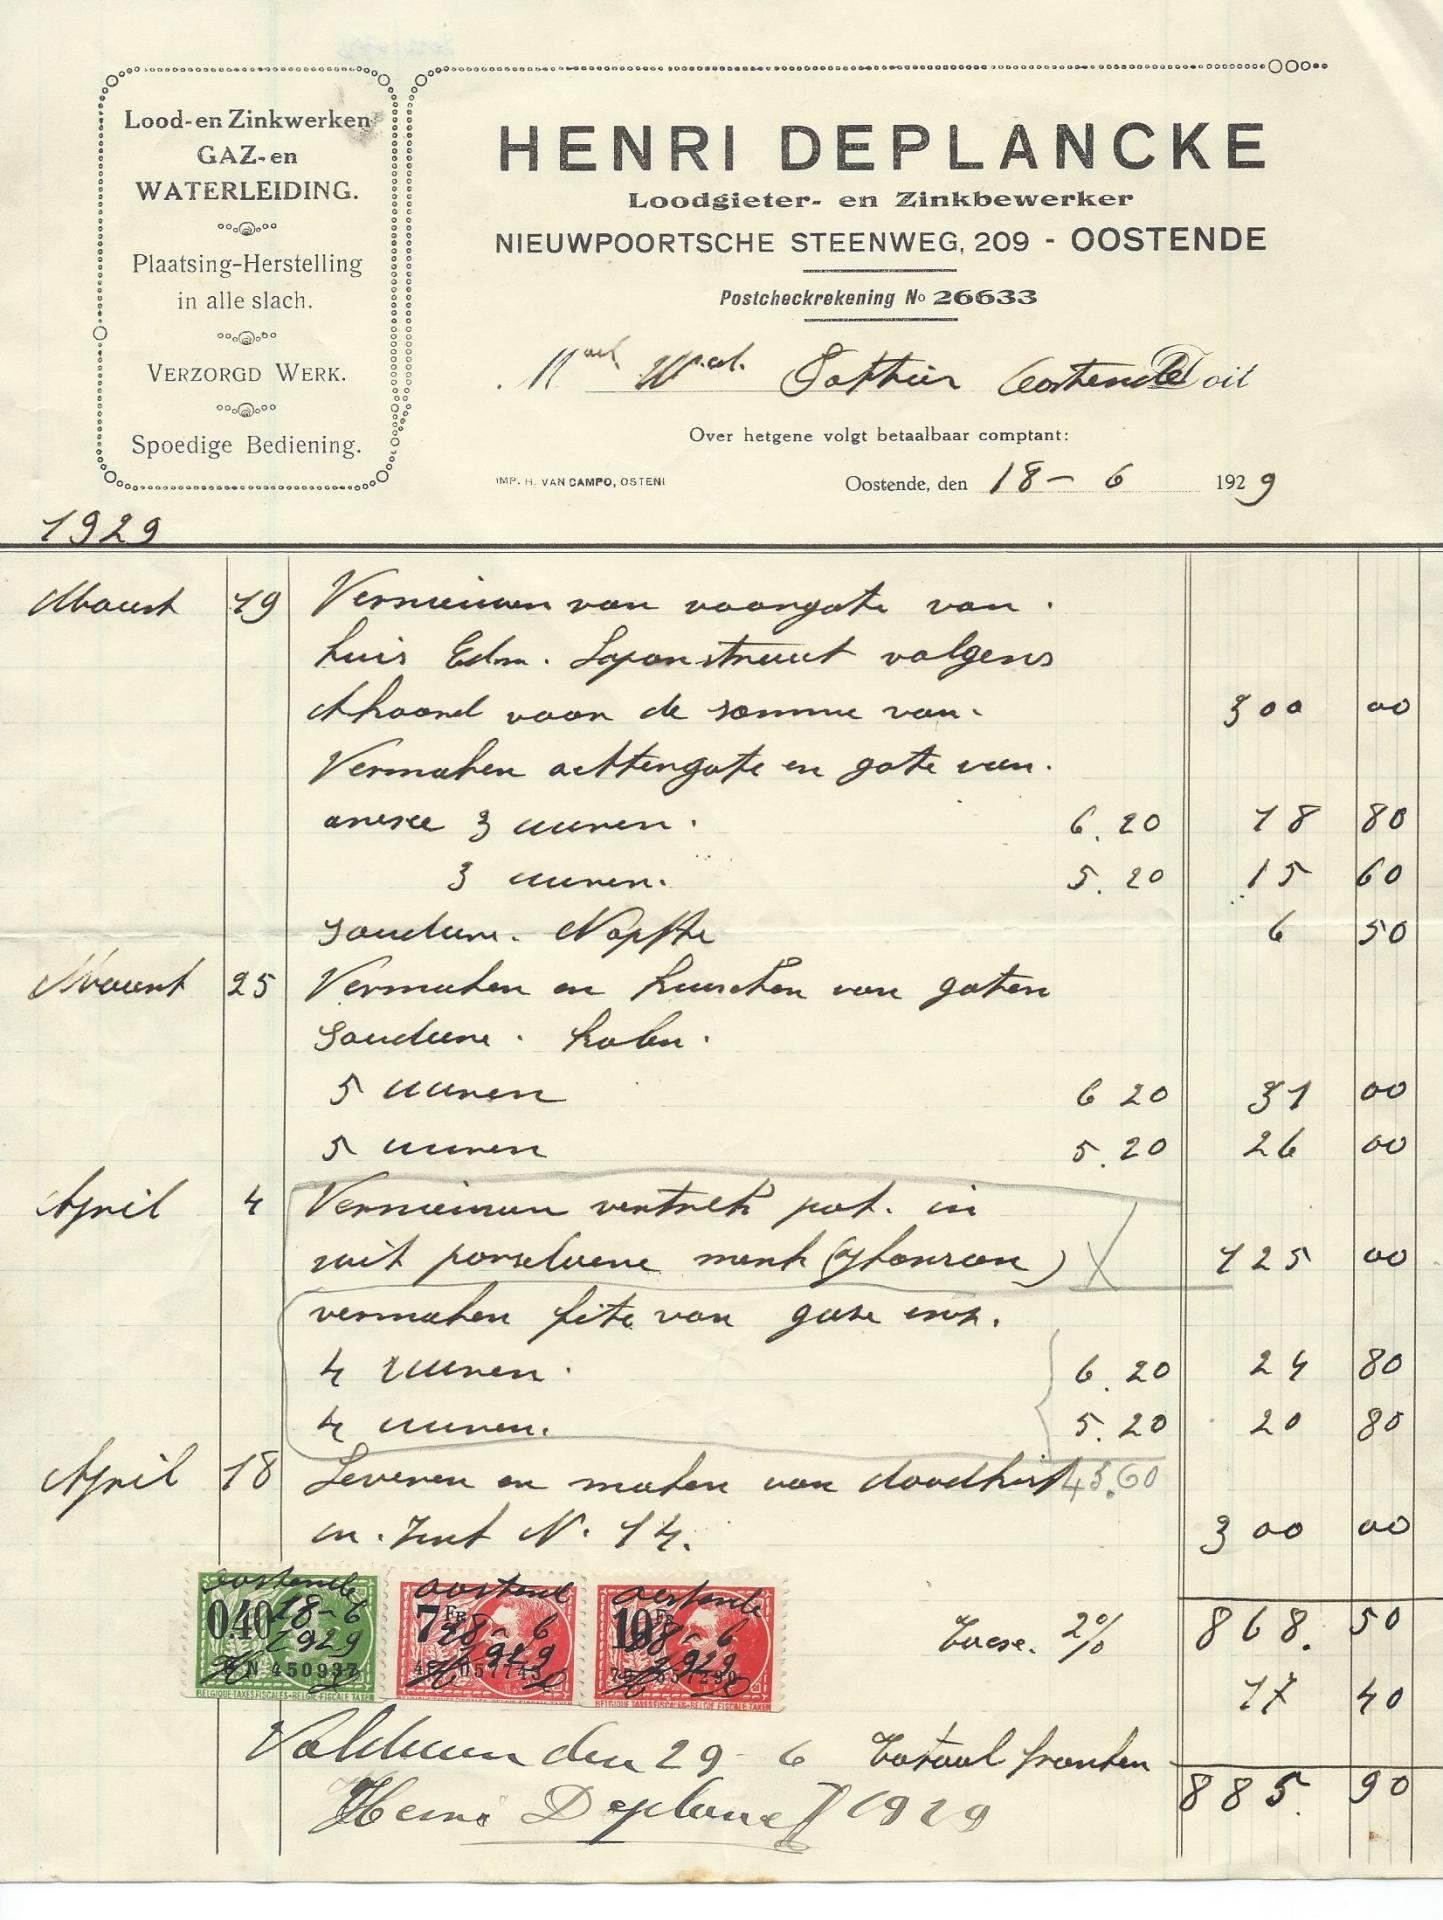 Lood-en Zinkwerken
GAZ-en
WATERLEIDING.
Plaatsing-Herstelling
in alle slach.
VERZORGD WERK.
Spoedige Bediening.
HENRI DEPLANCKE
Loodgieter- en Zinkbewerker
NIEUWPOORTSCHE STEENWEG, 209 - OOSTENDE
Postcheckrekening No 26633
Oostende Doit
Over hetgene volgt betaalbaar comptant:
IMP. H. VAN CAMPO, OSTEN
Oostende, den 18 - 6 1929
1929
Maart 19 Vernieuwen van voorgote van.
huis Edm. Laponstraat volgens
Akoord voor de somme van. 300 00
Vermaken achtergote en gote van.
anexe 3 uuren. 6.20 18 80
3 uuren. 5.20 15 60
Soudure. Napfte 6 50
Maart 25 Vermaken en kuischen van goten
Soudure. kolen.
5 uuren 6 20 31 00
5 uuren 5.20 26 00
April 4 Vernieuwen vertrek pot. in
wit porseleine merk 125 00
vermaken fite van gaze enz.
4 uuren. 6.20 24 80
4 uuren. 5.20 20 80
April 18 Leveren en maken van doodkist 43.60
in. Zink N. 14. 300 00
868.50
Taxe. 2% 17 40
Totaal franken 885.90
oostende
0.40
18-6
1929
N 450937
BELGIQUE-TAXES FISCALES-BELGIE-FISCALE TAXEN
oostende
7 Fr
18-6
1929
oostende
10 Fr
18-6
1929
BELGIQUE TAXES FISCALES-BELGIE-FISCALE TAXEN
Voldaan den 29-6
Henri Deplancke 1929